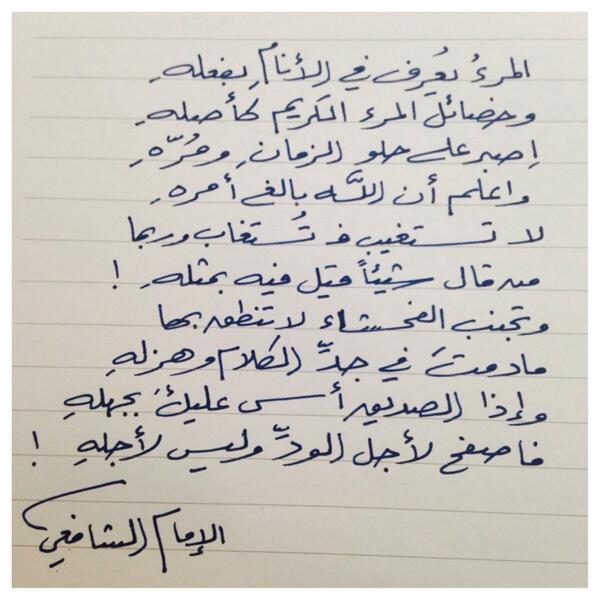 المرءُ يُعرف في الأنامِ بفعلهِ
وخصائل المرء الكريم كأصلهِ
اِصبر على حلو الزمانِ ومُرّهِ
واعلم أن اللّه بالغ أمرهِ
لا تستغيب فتُستغاب وربما
من قال شيئاً قيل فيه بمثلهِ !
وتجنب الفحشاء لا تنطق بها
ما دمتَ في جدِّ الكلام وهزلهِ
وإذا الصديق أسى عليكَ بجهلهِ
فاصفح لأجل الودِّ وليس لأجلهِ !
الإمام الشافعي